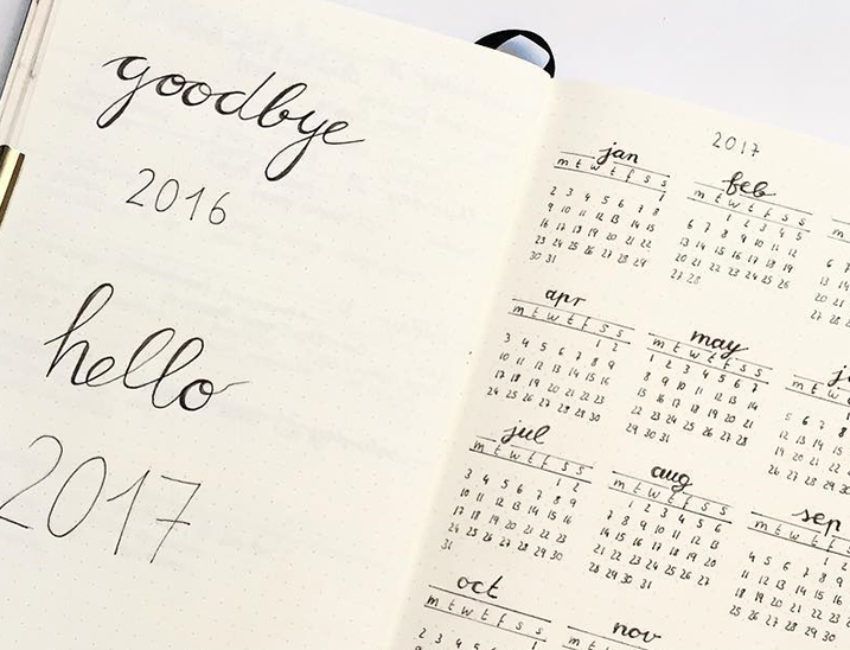 goodbye
2016
hello
2017
2017
jan
m t w t f s s
1
2 3 4 5 6 7 8
9 10 11 12 13 14 15
16 17 18 19 20 21 22
23 24 25 26 27 28 29
30 31
feb
m t w t f s s
1 2 3 4 5
6 7 8 9 10 11 12
13 14 15 16 17 18 19
20 21 22 23 24 25 26
27 28
6 7
13 14
20 21
27 28
apr
m t w t f s s
1 2
3 4 5 6 7 8 9
10 11 12 13 14 15 16
17 18 19 20 21 22 23
24 25 26 27 28 29 30
may
m t w t f s s
1 2 3 4 5 6 7
8 9 10 11 12 13 14
15 16 17 18 19 20 21
22 23 24 25 26 27 28
29 30 31
m t w t
5 6 7 8
12 13 14 15
19 20 21 22
26 27 28 29
jul
m t w t f s s
1 2
3 4 5 6 7 8 9
10 11 12 13 14 15 16
17 18 19 20 21 22 23
24 25 26 27 28 29 30
31
aug
m t w t f s s
1 2 3 4 5 6
7 8 9 10 11 12 13
14 15 16 17 18 19 20
21 22 23 24 25 26 27
28 29 30 31
sep
m t w t f
1 2
4 5 6 7 8 9
11 12 13 14 15 16
18 19 20 21 22 23
25 26 27 28 29 30
oct
m t w t f s s
1
2 3 4 5 6
nov
m t w t f s